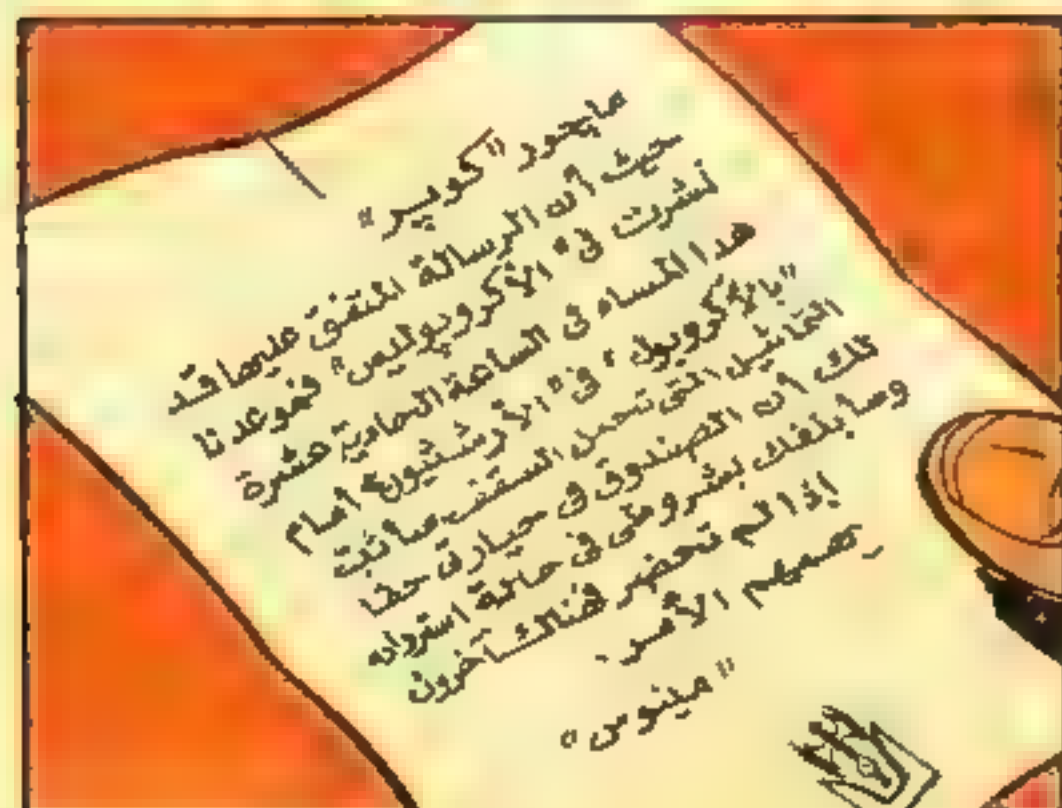 مايجور "كوبير"
حيث أن الرسالة المتفق عليها قد
نشرت فى "الأكروبوليس" فموعدنا
هذا المساء فى الساعة الحادية عشرة
"بالأكروبول" فى "الأرشثيون" أمام
التماثيل التى تحمل السقف سأثبت
لك أن الصندوق فى حيازتى حقا
وسأبلغك بشروطى فى حالة استرداده
إذا لم تحضر فهناك آخرون
يهمهم الأمر.
"مينوس"